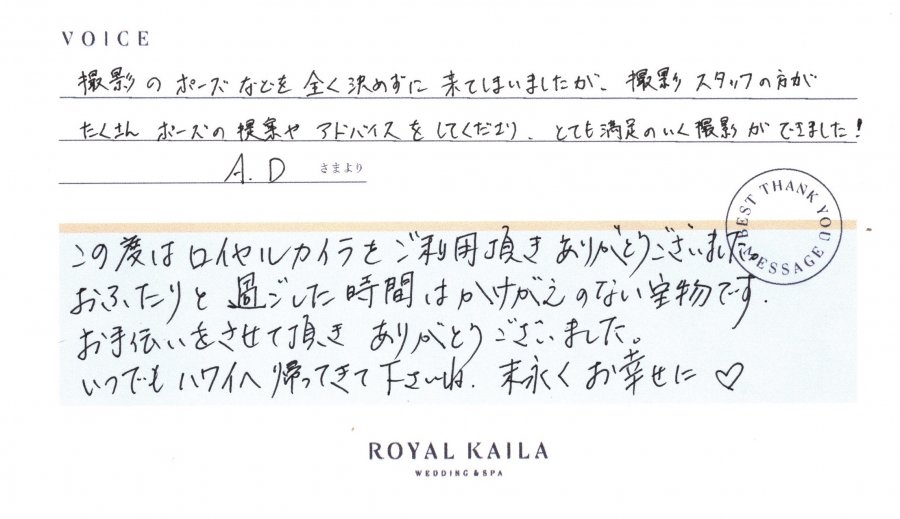 VOICE
撮影のポーズなどを全く決めずに来てしまいましたが、撮影スタッフの方が
たくさんポーズの提案やアドバイスをしてくださり、とても満足のいく撮影ができました!
A.D さまより
BEST THANK YOU MESSAGE
この度はロイヤルカイラをご利用頂きありがとうございました。
おふたりと過ごした時間はかけがえのない宝物です。
お手伝いをさせて頂きありがとうございました。
いつでもハワイへ帰ってきて下さいね。末永くお幸せに♡
ROYAL KAILA
WEDDING & SPA